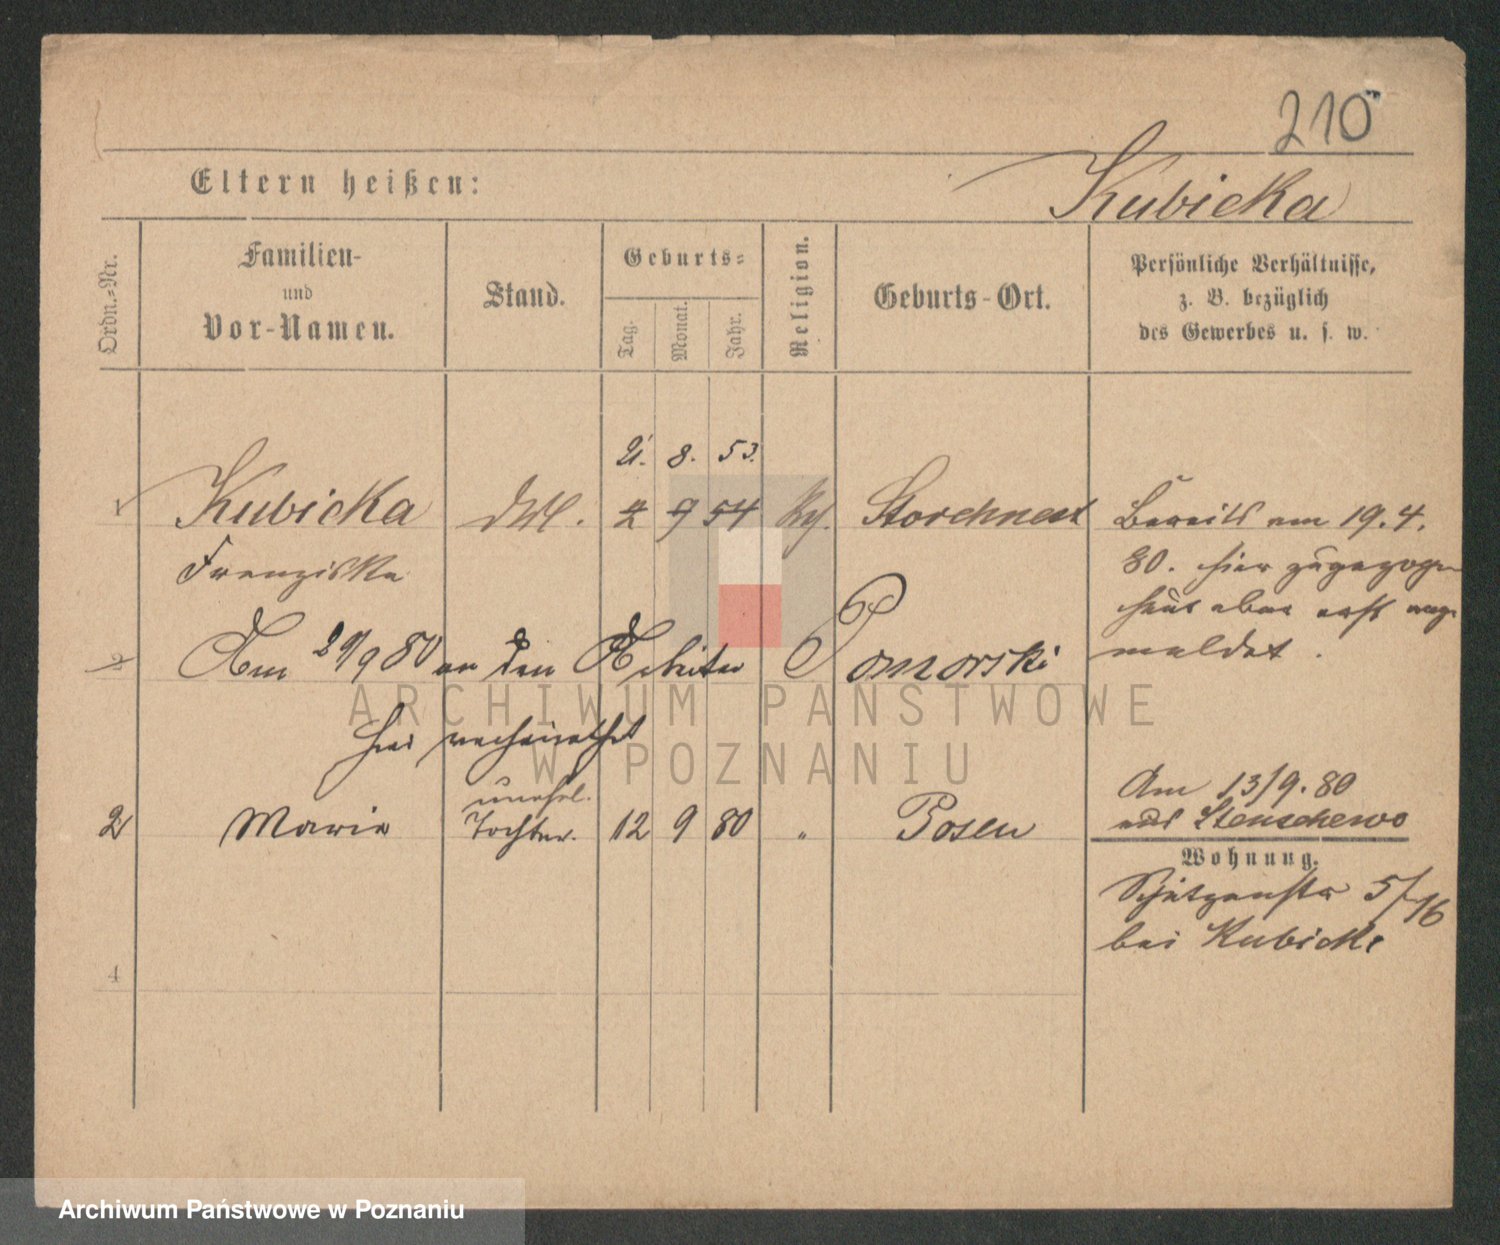 210
Eltern heißen:
Kubicka
Ordn.-Nr.
Familien-
und
Vor-Namen.
Stand.
Geburts-
Tag.
Monat.
Jahr.
Religion.
Geburts-Ort.
Persönliche Verhältnisse,
z. B. bezüglich
des Gewerbes u. s. w.
21. 8. 53.
1 Kubicka 2 9 54 Storchnest Bereits am 19.4.
Franziska 80. hier zugezogen
Am 29/9 80 an den Arbeiter Pomorski
hier verheirathet
meldet.
unehel.
2 Maria Tochter. 12 9 80 " Posen
Am 13/9.80
aus Stenschewo
Wohnung.
Schützenstr 5/16
bei Kubicki
4
ARCHIWUM PAŃSTWOWE
W POZNANIU
Archiwum Państwowe w Poznaniu